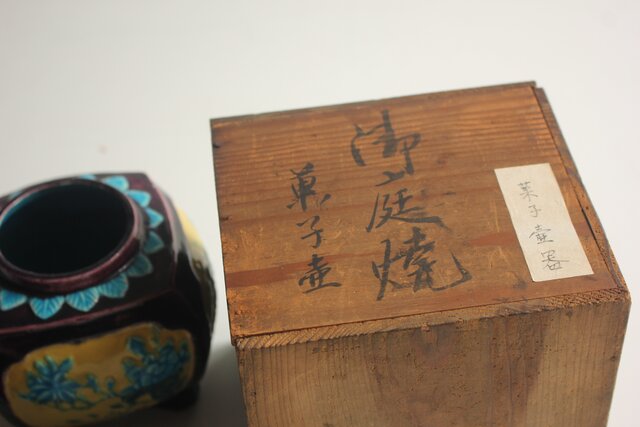 御庭焼
菓子壷
菓子壷器